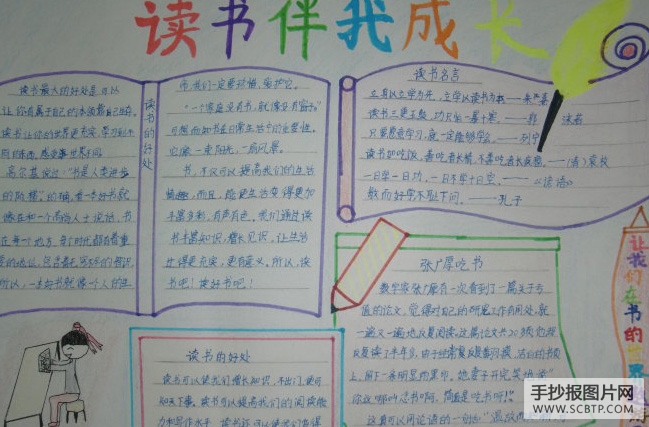 读书伴我成长
读书最大的好处是可以
让你有属于自己的本领靠自己生存。
读书让你的世界更充实,学习到不
同的东西,感受世界不同
高尔基说过:"书是人类进步
的阶梯。"的确,看一本好书就
像在和一个高尚人士说话,书
在每一个地方、每个时代都有着重
要的地位,
所以,一本好书就像一个人的生
读书的好处
命,我们一定要珍惜、爱护它。
"一个家庭没有书,就像没有窗子"
可想而知书在日常生活中的重要性。
它像一束阳光,一扇风景。
书,不仅可以提高我们的生活
情趣,而且,能使生活变得更加
丰富多彩,有声有色。我们通过读
书丰富知识,增长见识,让生活
变得更充实,更有意义。所以,读
书吧!读好书吧!
读书名言
立身以立学为先,立学以读书为本
读书三更五鼓,功只怕一暴十寒。
只要愿意学习,就一定能够学会。——列宁
读书如吃饭,善吃者长精神,不善吃者长痰瘤。——(清)袁枚
一日学一日功,一日不学十日空。
敏而好学不耻下问。——孔子
张广厚吃书
数学家张广厚有一次看到了一篇关于亏
值的论文,觉得对自己的研究工作有用处,就
一遍又一遍地反复阅读。这篇论文共20多页,他
反复读了半年多。由于经常反复翻阅,洁白的书页
上,留下一条明显的黑印。他妻子开玩笑地说"
你这哪叫念书啊,简直是吃书呀!"
让我们在书的世界
读书的好处
读书可以使我们增长知识,不出门,便可
知天下事。读书可以提高我们的阅读能
力和写作水平,读书还可以使我们变得
手抄报图片网
WWW.SCBTP.COM